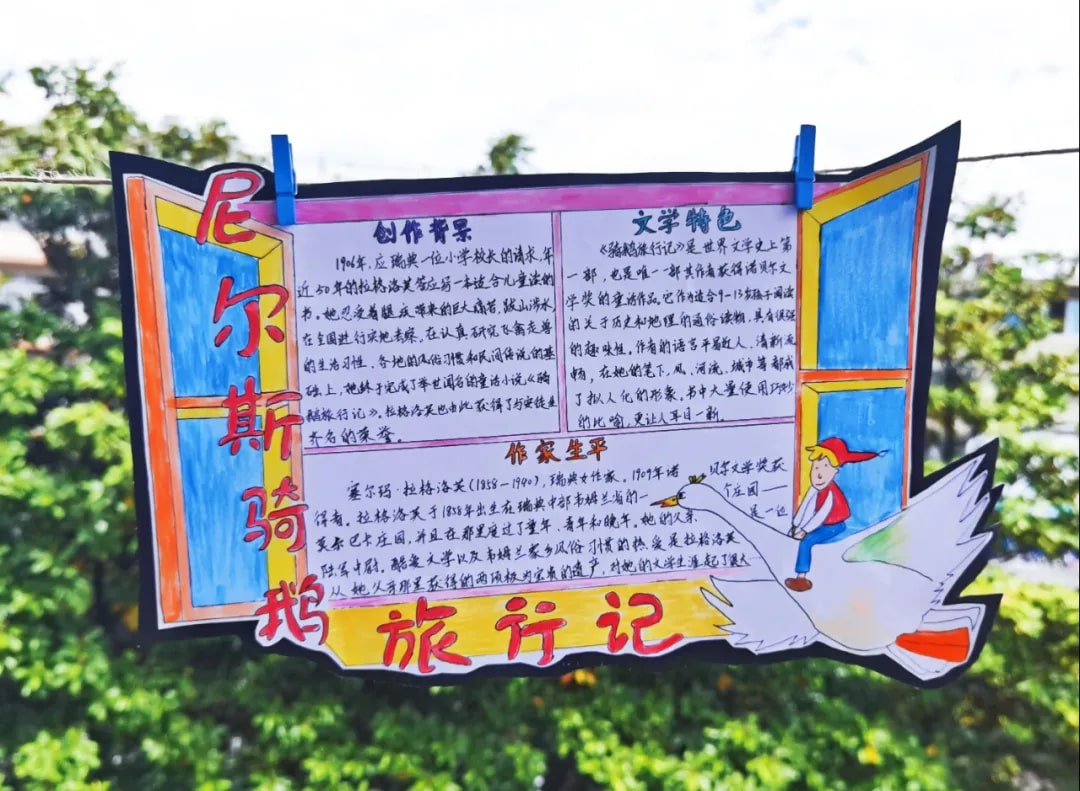 尼尔斯骑鹅
旅行记
创作背景
1906年,应瑞典一位小学校长的请求,年
近50年的拉格洛芙答应写一本适合儿童读的
书。她忍受着腿疾带来的巨大痛苦,跋山涉水,
在全国进行实地考察。在认真研究飞禽走兽
的生活习性、各地的风俗习惯和民间传说的基
础上,她终于完成了举世闻名的童话小说《骑
鹅旅行记》。拉格洛芙也由此获得了与安徒生
齐名的荣誉。
文学特色
《骑鹅旅行记》是世界文学史上第
一部,也是唯一一部其作者获得诺贝尔文
学奖的童话作品。它作为适合9-13岁孩子阅读
的关于历史和地理的通俗读物,具有很强
的趣味性。作者的语言平易近人、清新流
畅,在她的笔下,风、河流、城市等都成
了拟人化的形象。书中大量使用巧妙
的比喻,更让人耳目一新。
作家生平
塞尔玛·拉格洛芙(1858-1940),瑞典女作家。1909年诺 贝尔文学奖获
得者。拉格洛芙于1858年出生在瑞典中部韦姆兰省的一 个庄园——
莫尔巴卡庄园,并且在那里度过了童年、青年和晚年。她的父亲 是一位
陆军中尉。酷爱文学以及韦姆兰家乡风俗习惯的热爱是拉格洛芙
从她父亲那里获得的两项极为宝贵的遗产,对她的文学生涯起了很大